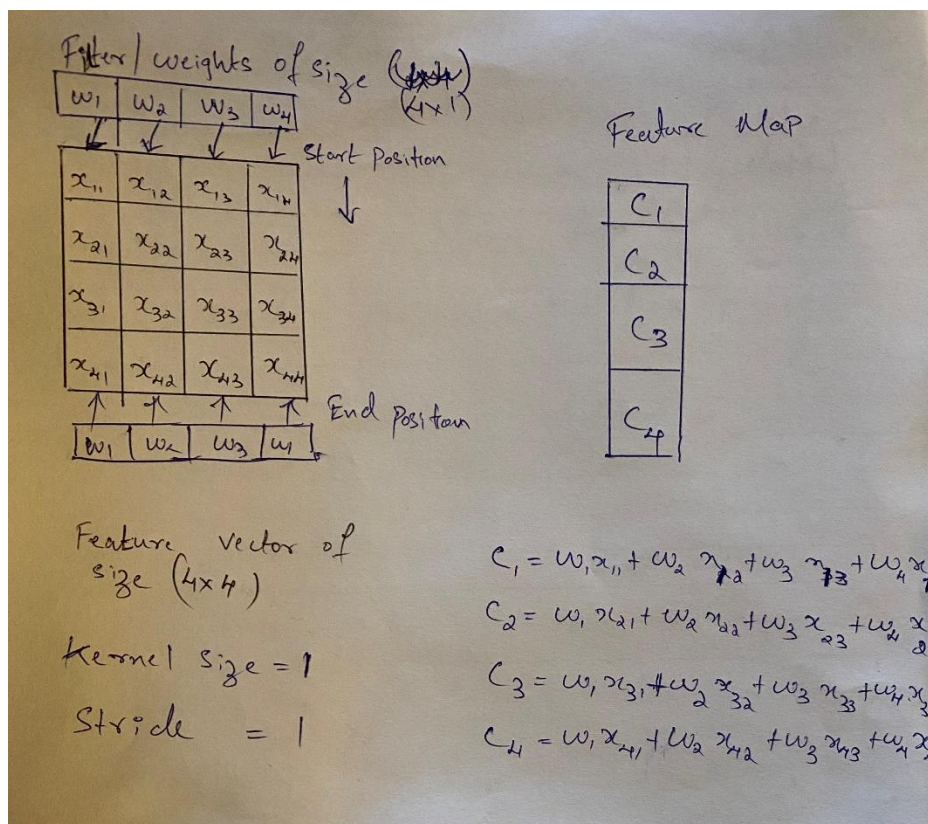 Filter/weights of size
(4x1)
w1 w2 w3 w4
Start Position
x11 x12 x13 x14
x21 x22 x23 x24
x31 x32 x33 x34
x41 x42 x43 x44
End Position
w1 w2 w3 w1
Feature Map
C1
C2
C3
C4
Feature vector of
size (4x4)
Kernel size = 1
Stride = 1
C1 = w1x11 + w2 x12 + w3 x13 + w4 x
C2 = w1 x21 + w2 x22 + w3 x23 + w4 x2
C3 = w1 x31 + w2 x32 + w3 x33 + w4 x3
C4 = w1 x41 + w2 x42 + w3 x43 + w4 x